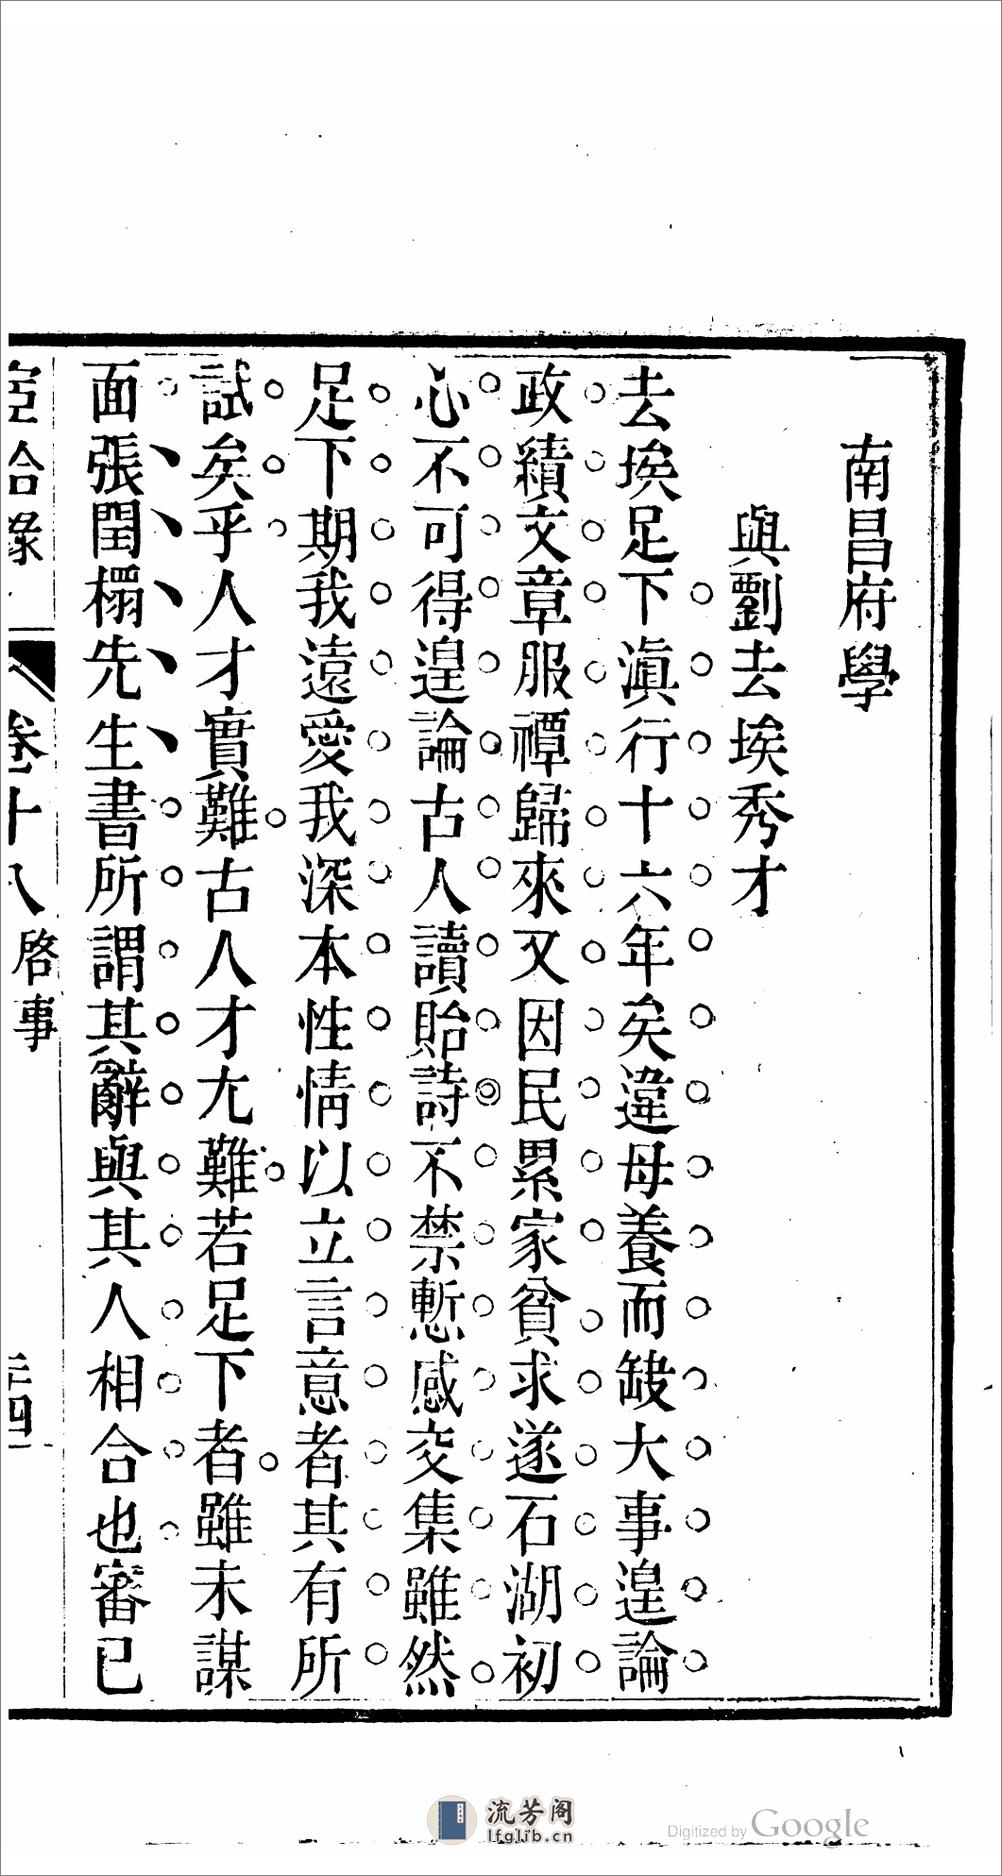 南昌府學
與劉去埃秀才
去埃足下滇行十六年矣違母養而缺大事遑論
政績文章服禫歸來又因民累家貧求遂石湖初
心不可得遑論古人讀貽詩不禁慙感交集雖然
足下期我遠愛我深本性情以立言意者其有所
試矣乎人才實難古人才尤難若足下者雖未謀
面張閏榻先生書所謂其辭與其人相合也審已
卷十八 啓事
流芳阁
lfglib.cn
Digitized by Google